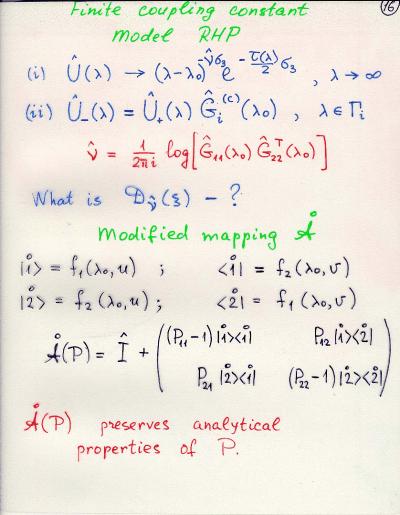 16
Finite coupling constant
model RHP
(i) Û(λ) → (λ-λ₀)^{-ν̂σ₃} e^{-τ(λ)/2 σ₃} , λ → ∞
(ii) Û₋(λ) = Û₊(λ) Ĝᵢ^{(c)}(λ₀) , λ ∈ Γᵢ
ν̂ = 1/2πi log[Ĝ₁₁(λ₀) Ĝ₂₂ᵀ(λ₀)]
What is 𝒟_ν̂(ξ) - ?
Modified mapping Å
|1̊> = f₁(λ₀,u) ; <1̊| = f₂(λ₀,v)
|2̊> = f₂(λ₀,u) ; <2̊| = f₁(λ₀,v)
Å(P) = Î + ( (P₁₁-1)|1̊><1̊| P₁₂|1̊><2̊|
P₂₁|2̊><1̊| (P₂₂-1)|2̊><2̊| )
Å(P) preserves analytical
properties of P.